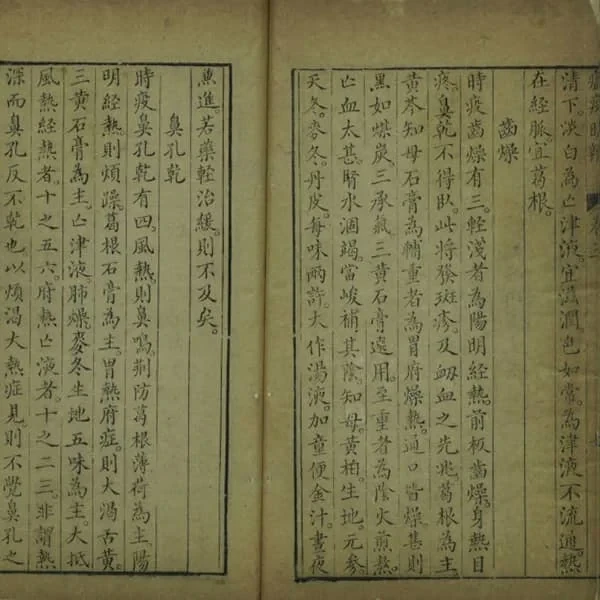 清下淡白為亡津液。宜滋潤。色如常。為津液不流通。熱
在經脈。宜葛根。
齒燥
時疫齒燥有三。輕淺者為陽明經熱。前板齒燥。身熱目
疼。鼻乾不得臥。此將發斑疹及衂血之先兆。葛根為主。
黃芩知母石膏為輔。重者為胃府燥熱。通口皆燥。甚則
黑如煤炭。三承氣三黃石膏選用。至重者為陰火煎熬。
亡血太甚。腎水涸竭。當峻補其陰。知母黃柏生地元參。
天冬。麥冬。丹皮。每味兩許。大作湯液。加童便金汁。晝夜
兼進。若藥輕治緩。則不及矣。
鼻孔乾
時疫鼻孔乾有四。風熱則鼻鳴。荊防葛根薄荷為主。陽
明經熱則煩躁。葛根石膏為主。胃熱府症。則大渴舌黃。
三黃石膏為主。亡津液。肺燥。麥冬生地五味為主。大抵
風熱經熱者。十之五六。府熱亡液者。十之二三。非謂熱
深而鼻孔反不乾也。以煩渴大熱症見。則不覺鼻孔之